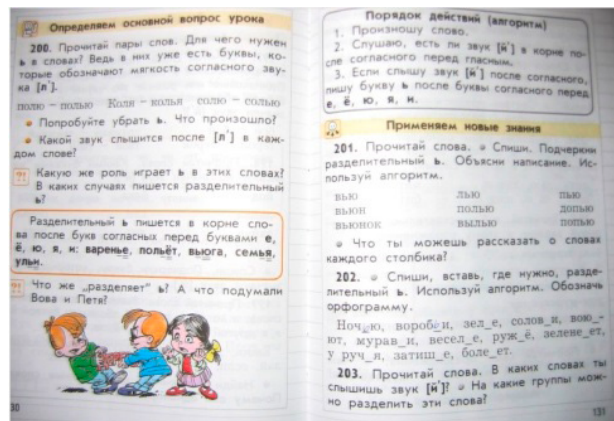 Определяем основной вопрос урока
200. Прочитай пары слов. Для чего нужен
ь в словах? Ведь в них уже есть буквы, ко-
торые обозначают мягкость согласного зву-
ка [л'].
полю – полью Коля – колья солю – солью
Попробуйте убрать ь. Что произошло?
Какой звук слышится после [л'] в каж-
дом слове?
?! Какую же роль играет ь в этих словах?
В каких случаях пишется разделительный
ь?
Разделительный ь пишется в корне сло-
ва после букв согласных перед буквами е,
ё, ю, я, и: варенье, польёт, вьюга, семья,
ульи.
?! Что же „разделяет" ь? А что подумали
Вова и Петя?
30
Порядок действий (алгоритм)
1. Произношу слово.
2. Слушаю, есть ли звук [й'] в корне по-
сле согласного перед гласным.
3. Если слышу звук [й'] после согласного,
пишу букву ь после буквы согласного перед
е, ё, ю, я, и.
Применяем новые знания
201. Прочитай слова. Спиши. Подчеркни
разделительный ь. Объясни написание. Ис-
пользуй алгоритм.
вью лью пью
вьюн полью допью
вьюнок вылью попью
Что ты можешь рассказать о словах
каждого столбика?
202. Спиши, вставь, где нужно, разде-
лительный ь. Используй алгоритм. Обозначь
орфограмму.
Ноч_ю, вороб_и, зел_е, солов_и, вою_-
ют, мурав_и, весел_е, руж_ё, зелене_ет,
у руч_я, затиш_е, боле_ет.
203. Прочитай слова. В каких словах ты
слышишь звук [й']? На какие группы мож-
но разделить эти слова?
131